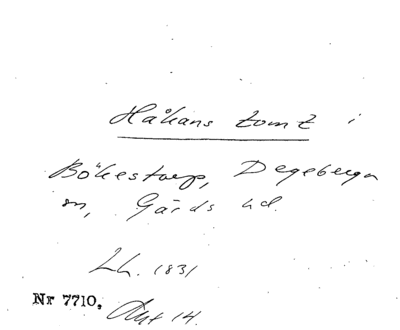 Håkans tomt i
Bökestorp, Degeberga
sn, Gärds hd.
Lh. 1831
Nr 7710, Akt 14.